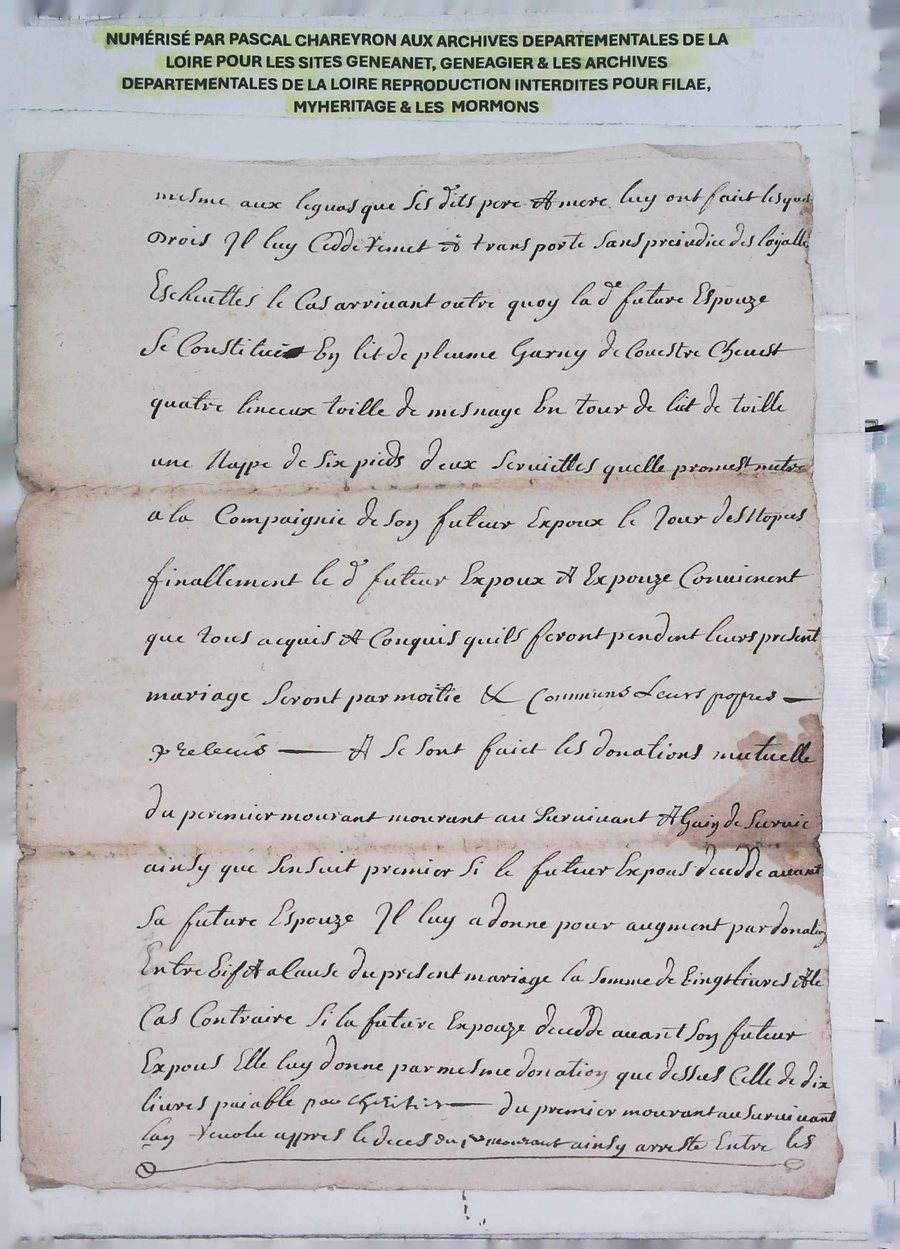 NUMÉRISÉ PAR PASCAL CHAREYRON AUX ARCHIVES DEPARTEMENTALES DE LA
LOIRE POUR LES SITES GENEANET, GENEAGIER & LES ARCHIVES
DEPARTEMENTALES DE LA LOIRE REPRODUCTION INTERDITES POUR FILAE,
MYHERITAGE & LES MORMONS
mesme aux leguas que ses dits pere & mere luy ont faict lesques
Drois Jl luy Cedde remet & transporte sans preiudice des loyalle
Escheuttes le Cas arriuant outre quoy la de future Espouze
Se Constitue En lit de plume Garny de Couestre Cheuest
quatre linceux toille de mesnage En tour de lit de toille
une Nappe de six pieds deux seruiettes quelle promest metre
a la Compaignie de son futeur Expoux le Jour des Nopces
finallement le d futeur Expoux & Expouze Conuienent
que tous acquis & Conquis quils feront pendent leurs present
mariage seront par moitie & Communs Leurs propres
preleués & se sont faict les donations mutuelle
du peremier mourant mourant au suruiuant & Gain de suruie
ainsy que sensuit premier si le futeur Expous decedde auant
sa future Espouze Jl luy a donne pour augment par donation
Entre Vifs & a Cause du present mariage la somme de Vingt liures & le
Cas Contraire si la future Expouze decedde auant son futeur
Expous Elle luy donne par mesme donation que dessus Celle de dix
liures paiable par du premier mourant au suruiuant
lan reuolu appres le deces du mourant ainsy arresté Entre les